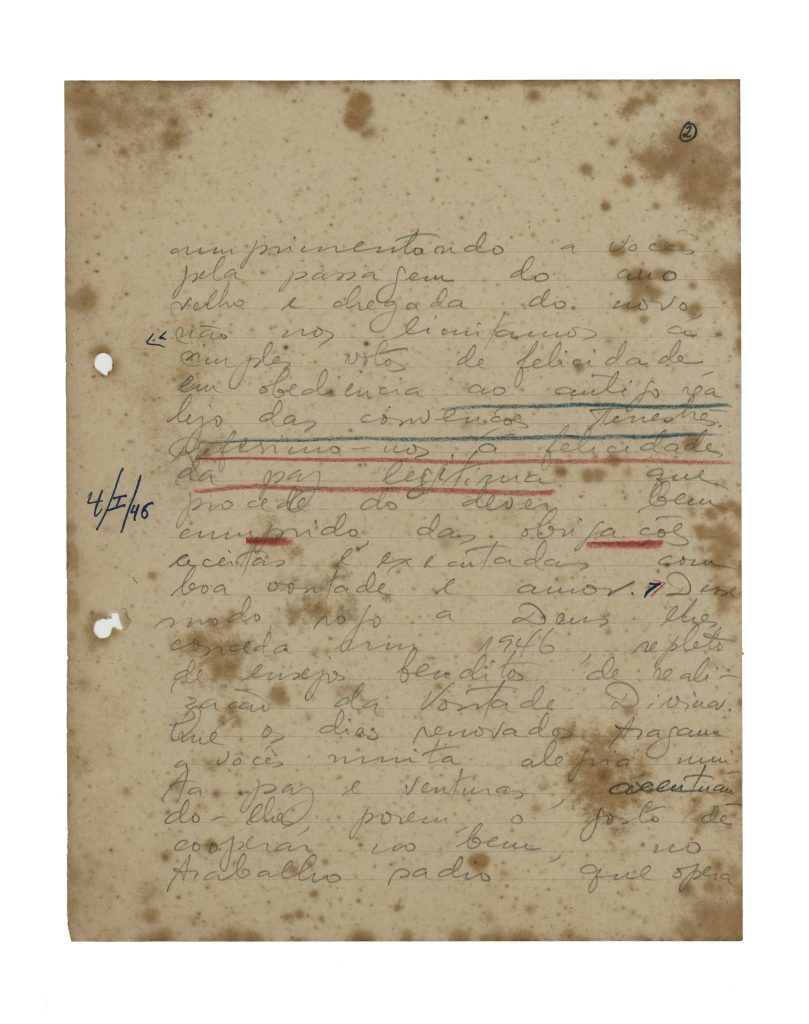 ②
cumprimentando a vocês
pela passagem do ano
velho e chegada do novo
não nos limitamos a
simples votos de felicidade
em obediencia ao antigo rea
lejo das convenções terrestres.
Referimo-nos á felicidade
da paz legitima que
procede do dever bem
cumprido, das obrigações
4/I/46
aceitas e executadas com
boa vontade e amor. Desse
modo, rogo a Deus lhes
conceda um 1946, repleto
de ensejos benditos de reali-
zação da Vontade Divina.
Que os dias renovados tragam
a vocês muita alegria mui
ta paz e venturas, acentuan
do-lhes, porem, o gosto de
cooperar no bem, no
trabalho sadio que opera